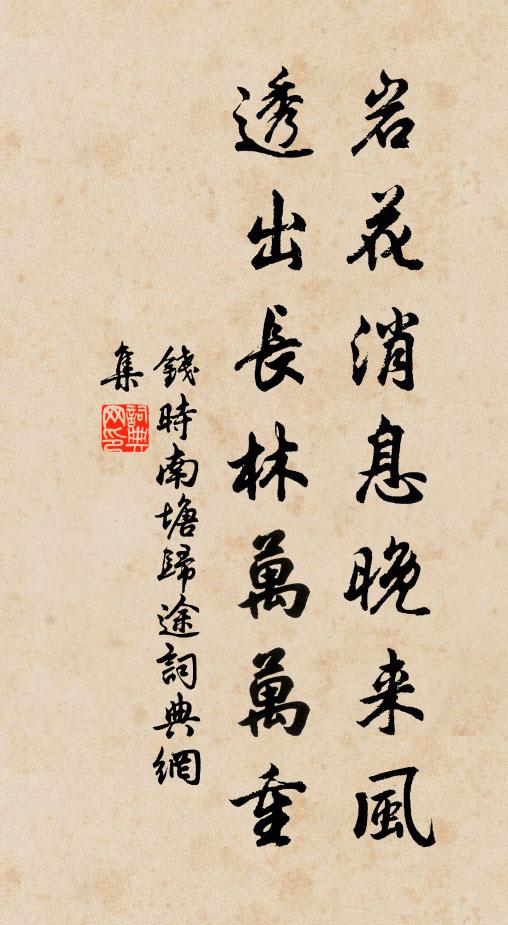 岩花消息晚来風
透出長林萬萬重
錢時南塘歸途詞典網
集
詞典网印